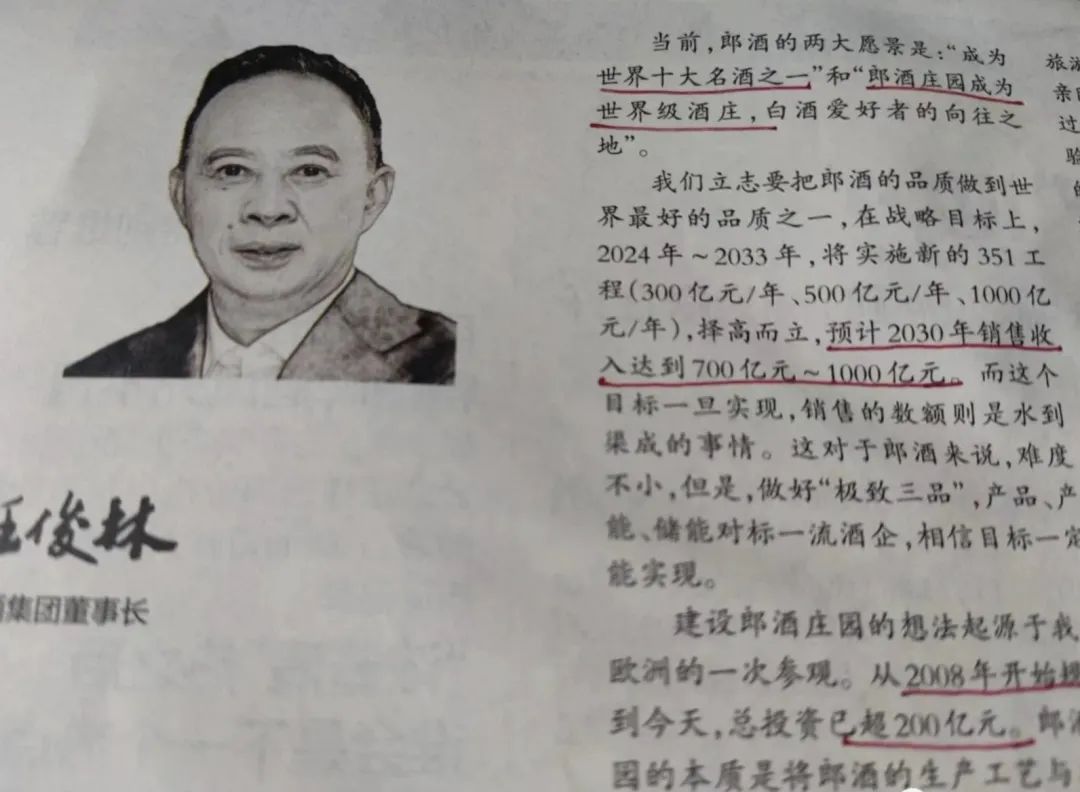 汪俊林
酒集团董事长
当前,郎酒的两大愿景是:“成为
世界十大名酒之一”和“郎酒庄园成为
世界级酒庄,白酒爱好者的向往之
地”。
我们立志要把郎酒的品质做到世
界最好的品质之一,在战略目标上,
2024年~2033年,将实施新的351工
程(300亿元/年、500亿元/年、1000亿
元/年),择高而立,预计2030年销售收
入达到700亿元~1000亿元。而这个
目标一旦实现,销售的数额则是水到
渠成的事情。这对于郎酒来说,难度
不小,但是,做好“极致三品”,产品、产
能、储能对标一流酒企,相信目标一定
能实现。
建设郎酒庄园的想法起源于我
欧洲的一次参观。从2008年开始规
到今天,总投资已超200亿元。郎酒
园的本质是将郎酒的生产工艺与
旅游
亲
过
验
的